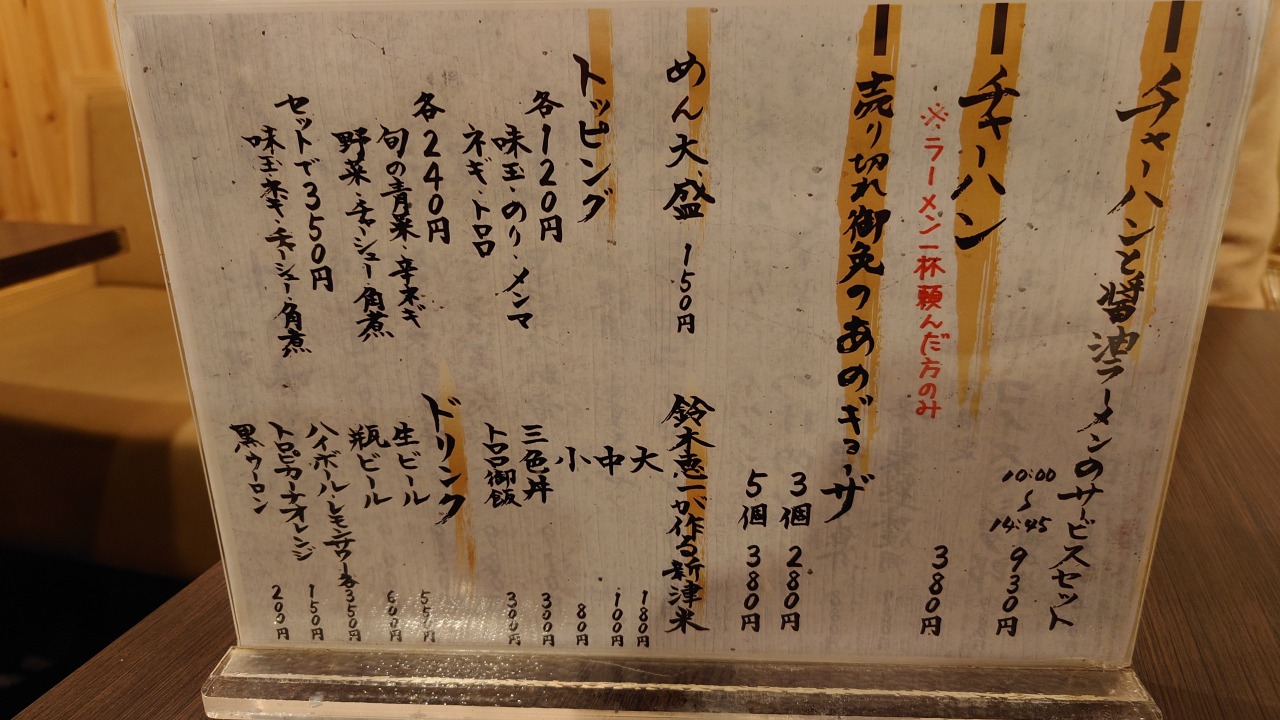 チャーハンと醤油ラーメンのサービスセット
10:00〜14:45 930円
チャーハン
※ラーメン一杯頼んだ方のみ
380円
売り切れ御免!あのギョーザ
3個 280円
5個 380円
めん大盛 150円
鈴木恵一が作る新津米
大 180円
中 100円
小 80円
三色丼 300円
トロロ御飯 300円
トッピング
各120円
味玉・のり・メンマ
ネギ・トロロ
各240円
旬の青菜・辛ネギ
野菜・チャーシュー・角煮
セットで350円
味玉・辛ネギ・チャーシュー・角煮
ドリンク
生ビール 550円
瓶ビール 600円
ハイボール・レモンサワー各350円
トロピカーナオレンジ 150円
黒ウーロン 200円